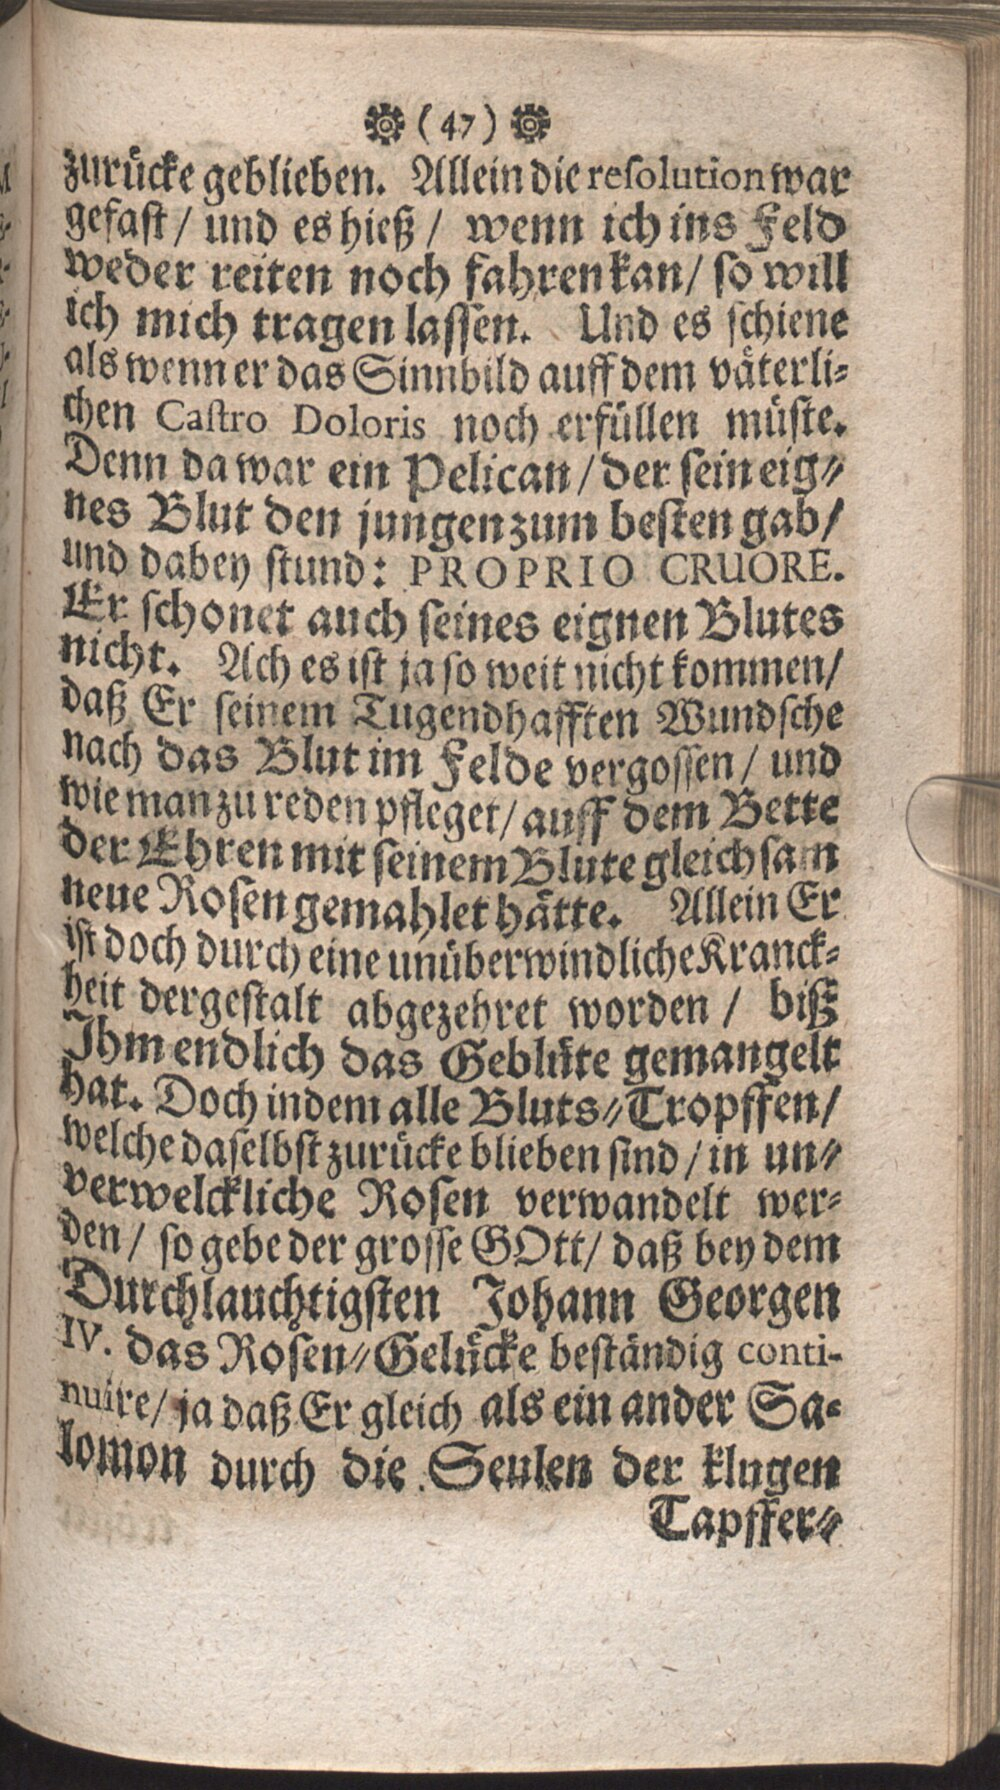 (47)
zurücke geblieben. Allein die resolution war
gefast / und es hieß / wenn ich ins Feld
weder reiten noch fahren kan / so will
ich mich tragen lassen. Und es schiene
als wenn er das Sinnbild auff dem väterli-
chen Castro Doloris noch erfüllen müste.
Denn da war ein Pelican / der sein eig-
nes Blut den jungen zum besten gab /
und dabey stund: PROPRIO CRUORE.
Er schonet auch seines eignen Blutes
nicht. Ach es ist ja so weit nicht kommen /
daß Er seinem Tugendhafften Wundsche
nach das Blut im Felde vergossen / und
wie man zu reden pfleget / auff dem Bette
der Ehren mit seinem Blute gleichsam
neue Rosen gemahlet hätte. Allein Er
ist doch durch eine unüberwindliche Kranck-
heit dergestalt abgezehret worden / biß
Ihm endlich das Geblüte gemangelt
hat. Doch indem alle Bluts-Tropffen /
welche daselbst zurücke blieben sind / in un-
verwelckliche Rosen verwandelt wer-
den / so gebe der grosse GOtt / daß bey dem
Durchlauchtigsten Johann Georgen
IV. das Rosen-Gelücke beständig conti-
nuire / ja daß Er gleich als ein ander Sa-
lomon durch die Seulen der klugen
Tapffer-